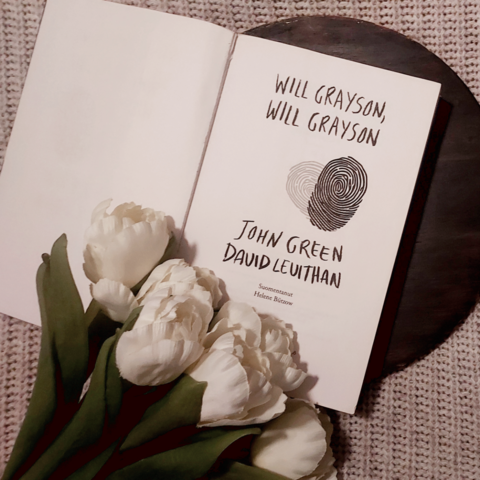 WILL GRAYSON,
WILL GRAYSON
JOHN GREEN
DAVID LEVITHAN
Suomentanut
Helene Bützow